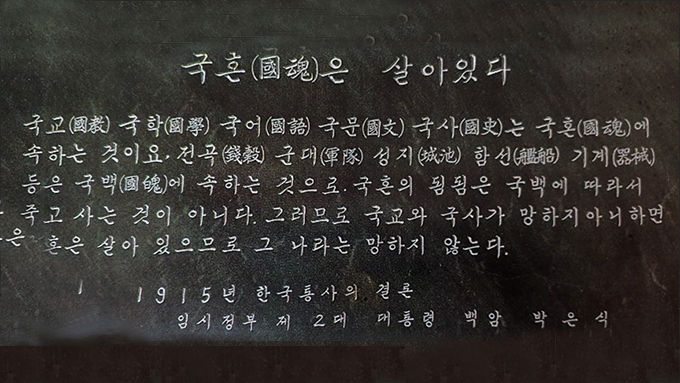 국혼(國魂)은 살아있다
국교(國敎) 국학(國學) 국어(國語) 국문(國文) 국사(國史)는 국혼(國魂)에
속하는 것이요. 전곡(錢穀) 군대(軍隊) 성지(城池) 함선(艦船) 기계(器械)
등은 국백(國魄)에 속하는 것으로. 국혼의 됨됨은 국백에 따라서
죽고 사는 것이 아니다. 그러므로 국교와 국사가 망하지아니하면
은 혼은 살아 있으므로 그 나라는 망하지 않는다.
1 1915년 한국통사의 결론
임시정부 제 2대 대통령 백암 박은식